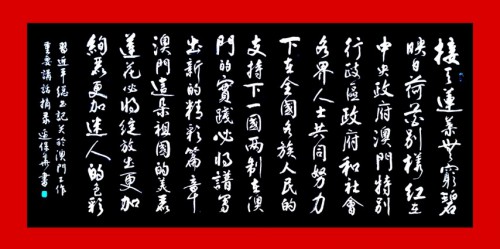 接天蓮葉無窮碧
映日荷花別樣紅在
中央政府澳門特別
行政區政府和社會
各界人士共同努力
下在全國各族人民的
支持下一國兩制在澳
門的實踐必將譜寫
出新的精彩篇章
澳門這朵祖國的美麗
蓮花必將綻放出更加
絢麗更加迷人的色彩
習近平總書記关於澳門工作
重要講話摘录 保華書